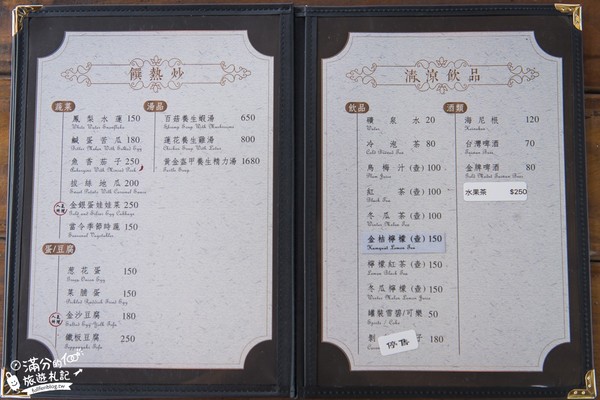 饌熱炒
蔬菜
鳳梨水蓮 150
White Water Snowflake
鹹蛋苦瓜 180
Bitter Melon With Salted Egg
魚香茄子 250
拔絲地瓜 200
Sweet Potato With Caramel Sauce
金銀蛋娃娃菜 250
Gold and Silver Egg Cabbage
當令季節時蔬 150
Seasonal Vegetables
蛋/豆腐
蔥花蛋 150
菜脯蛋 150
金沙豆腐 180
Salted Egg Yolk Tofu
鐵板豆腐 250
Teppanyaki Tofu
湯品
百菇養生蝦湯 650
Shrimp Soup With Mushroom
蓮花養生雞湯 800
Chicken Soup With Lotus
黃金盔甲養生精力湯 1680
Turtle Soup
清涼飲品
飲品
礦泉水 20
Water
冷泡茶 80
Cold Brewed Tea
烏梅汁(壺) 100
Plum Juice
紅茶(壺) 100
Black Tea
冬瓜茶(壺) 100
Winter Melon Tea
金桔檸檬(壺) 150
Kumquat Lemon Tea
檸檬紅茶(壺) 150
Lemon Black Tea
冬瓜檸檬(壺) 150
Winter Melon Lemon Juice
罐裝雪碧/可樂 50
Sprite / Coke
剝 子 180
停售
酒類
海尼根 120
Heineken
台灣啤酒 70
Taiwan Beer
金牌啤酒 80
Gold Medal Taiwan Beer
水果茶 $250
滿分的
旅遊札記
fullfenblog.tw